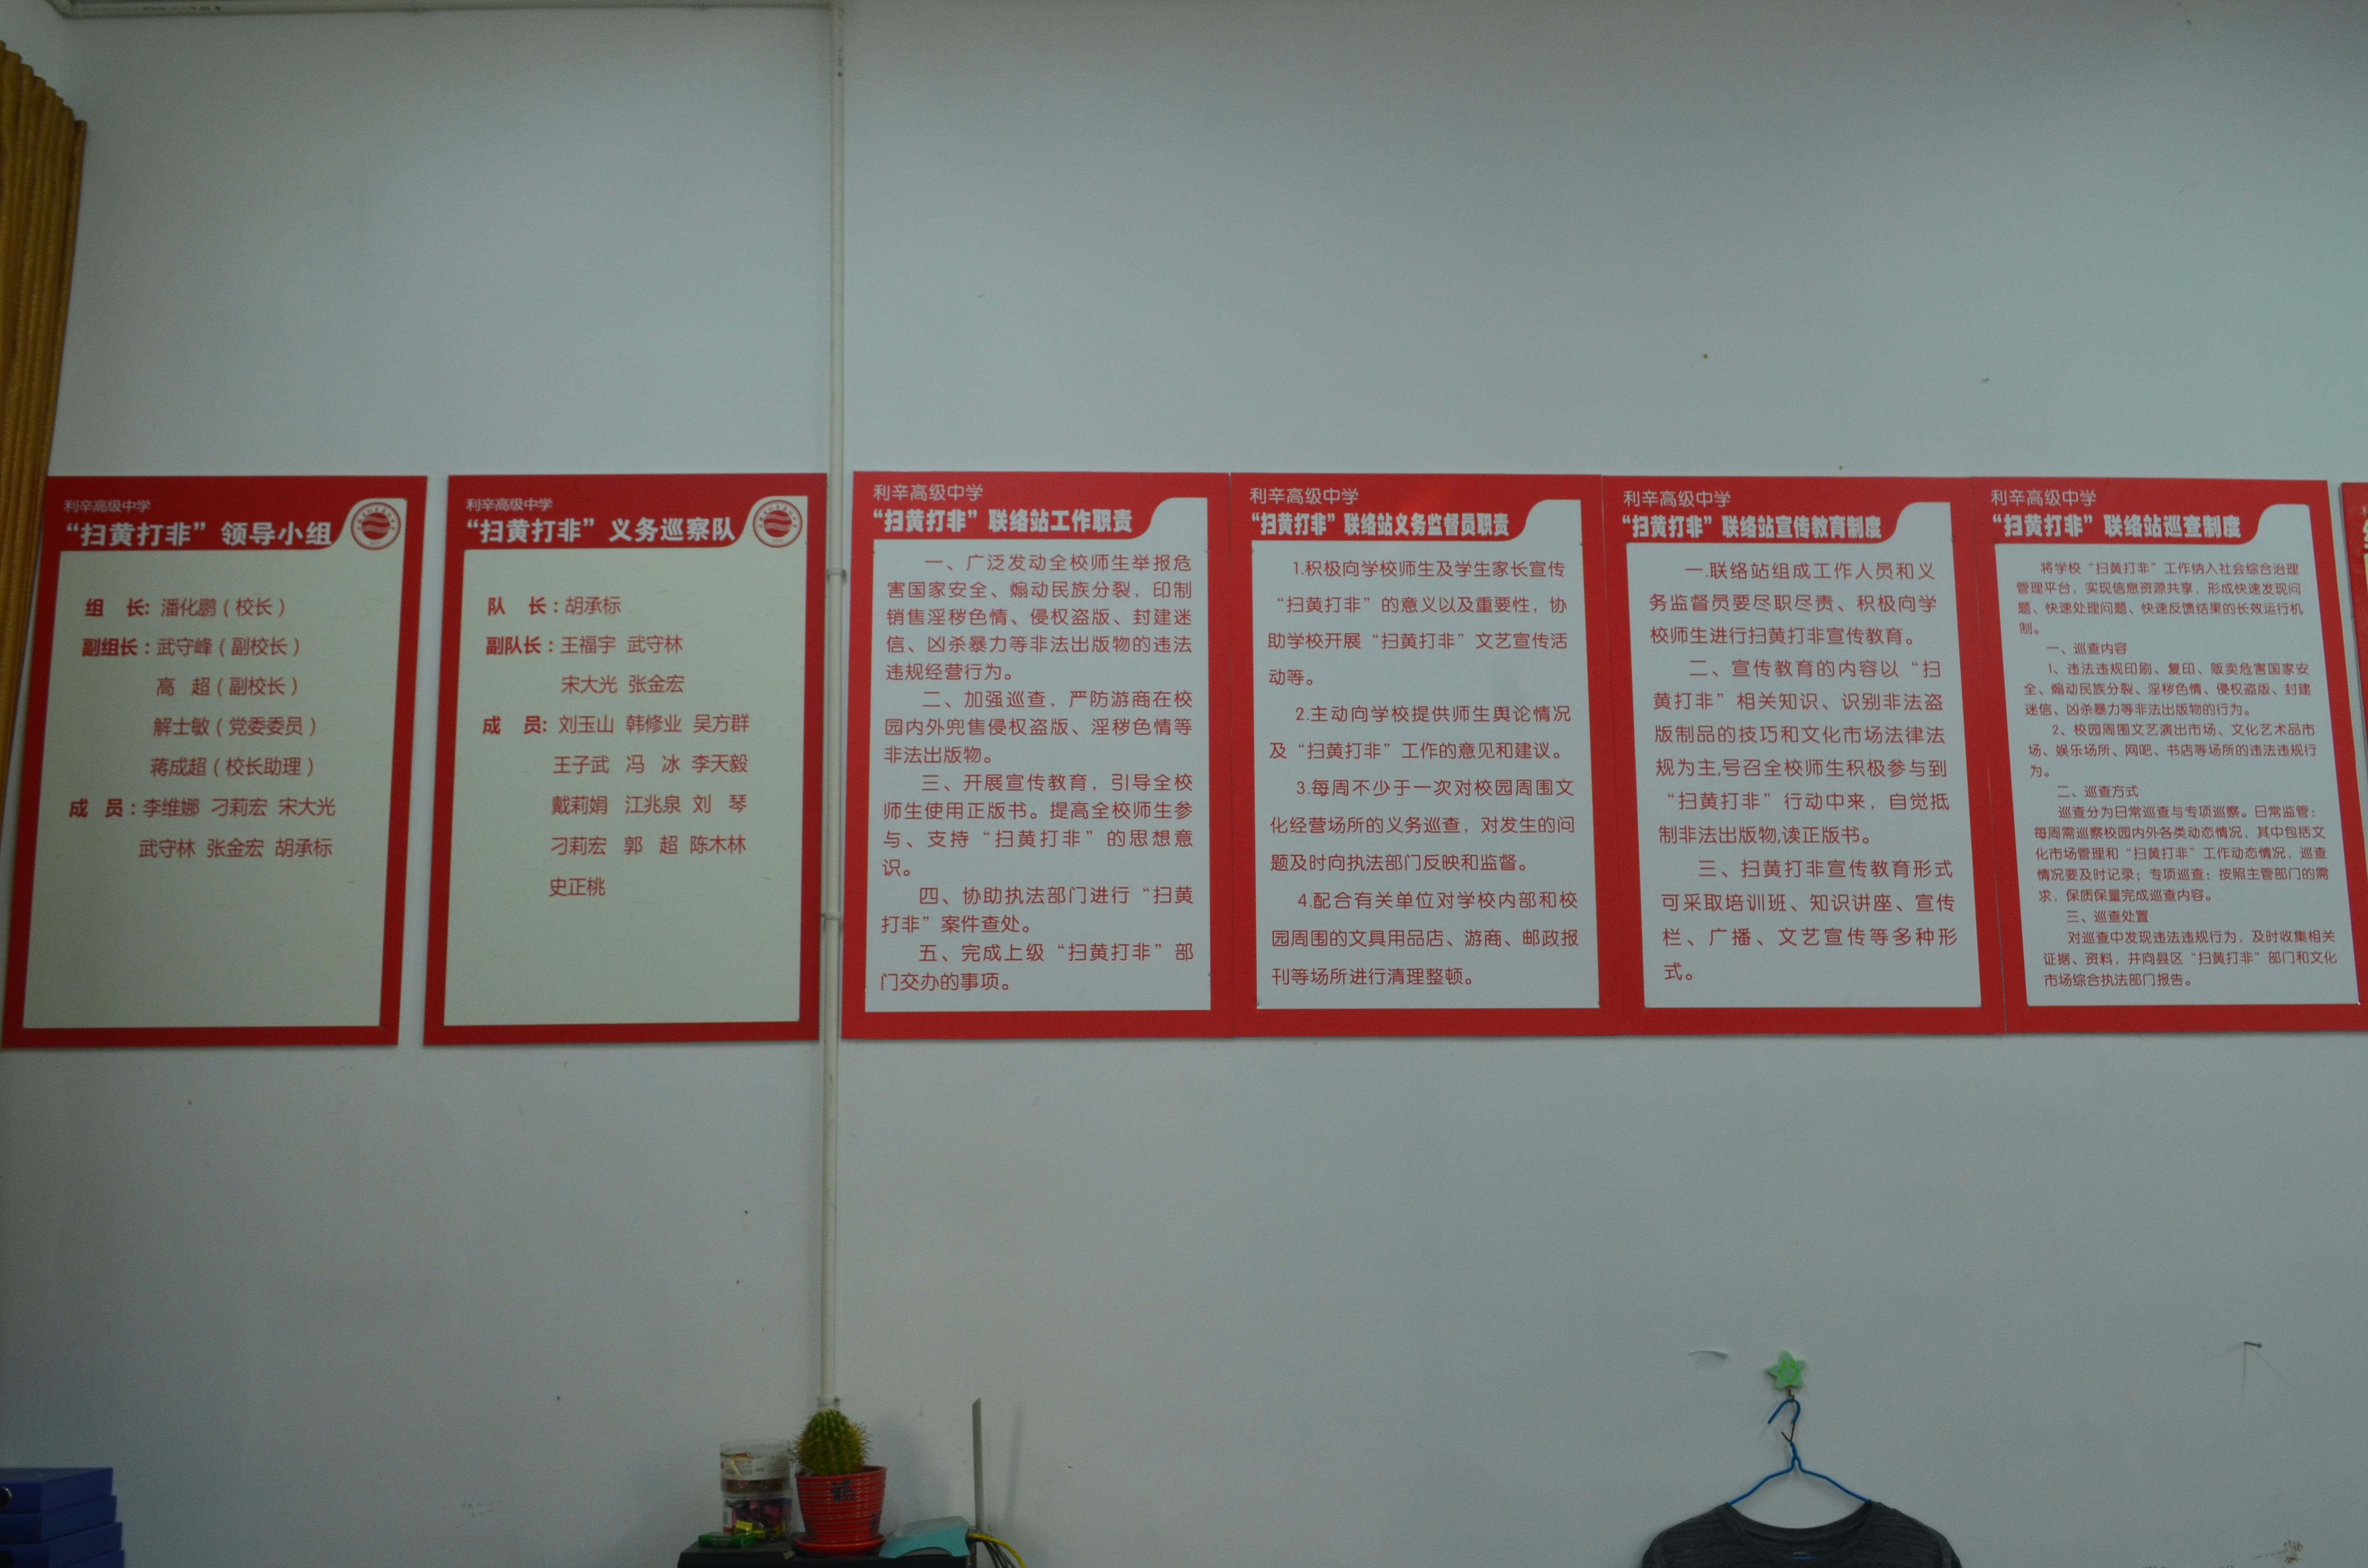 利辛高级中学
“扫黄打非”领导小组
组 长: 潘化鹏（校长）
副组长：武守峰（副校长）
高 超（副校长）
解士敏（党委委员）
蒋成超（校长助理）
成 员：李维娜 刁莉宏 宋大光
武守林 张金宏 胡承标
利辛高级中学
“扫黄打非”义务巡察队
队 长：胡承标
副队长：王福宇 武守林
宋大光 张金宏
成 员: 刘玉山 韩修业 吴方群
王子武 冯 冰 李天毅
戴莉娟 江兆泉 刘 琴
刁莉宏 郭 超 陈木林
史正桃
利辛高级中学
“扫黄打非”联络站工作职责
一、广泛发动全校师生举报危
害国家安全、煽动民族分裂，印制
销售淫秽色情、侵权盗版、封建迷
信、凶杀暴力等非法出版物的违法
违规经营行为。
二、加强巡查，严防游商在校
园内外兜售侵权盗版、淫秽色情等
非法出版物。
三、开展宣传教育，引导全校
师生使用正版书。提高全校师生参
与、支持“扫黄打非”的思想意
识。
四、协助执法部门进行“扫黄
打非”案件查处。
五、完成上级“扫黄打非”部
门交办的事项。
利辛高级中学
“扫黄打非”联络站义务监督员职责
1.积极向学校师生及学生家长宣传
“扫黄打非”的意义以及重要性，协
助学校开展“扫黄打非”文艺宣传活
动等。
2.主动向学校提供师生舆论情况
及“扫黄打非”工作的意见和建议。
3.每周不少于一次对校园周围文
化经营场所的义务巡查，对发生的问
题及时向执法部门反映和监督。
4.配合有关单位对学校内部和校
园周围的文具用品店、游商、邮政报
刊等场所进行清理整顿。
利辛高级中学
“扫黄打非”联络站宣传教育制度
一.联络站组成工作人员和义
务监督员要尽职尽责、积极向学
校师生进行扫黄打非宣传教育。
二、宣传教育的内容以“扫
黄打非”相关知识、识别非法盗
版制品的技巧和文化市场法律法
规为主,号召全校师生积极参与到
“扫黄打非”行动中来，自觉抵
制非法出版物,读正版书。
三、扫黄打非宣传教育形式
可采取培训班、知识讲座、宣传
栏、广播、文艺宣传等多种形
式。
利辛高级中学
“扫黄打非”联络站巡查制度
将学校“扫黄打非”工作纳入社会综合治理
管理平台，实现信息资源共享，形成快速发现问
题、快速处理问题、快速反馈结果的长效运行机
制。
一、巡查内容
1、违法违规印刷、复印、贩卖危害国家安
全、煽动民族分裂、淫秽色情、侵权盗版、封建
迷信、凶杀暴力等非法出版物的行为。
2、校园周围文艺演出市场、文化艺术品市
场、娱乐场所、网吧、书店等场所的违法违规行
为。
二、巡查方式
巡查分为日常巡查与专项巡察。日常监管：
每周需巡察校园内外各类动态情况，其中包括文
化市场管理和“扫黄打非”工作动态情况，巡查
情况要及时记录；专项巡查：按照主管部门的需
求，保质保量完成巡查内容。
三、巡查处置
对巡查中发现违法违规行为，及时收集相关
证据、资料，并向县区“扫黄打非”部门和文化
市场综合执法部门报告。